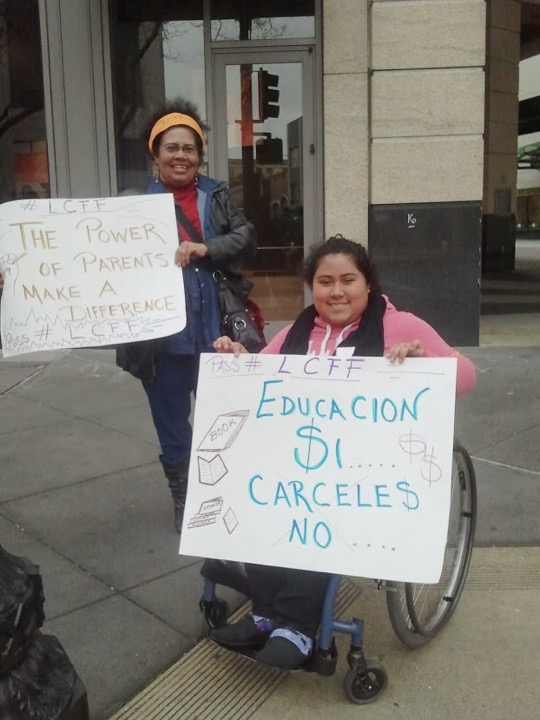 # LCFF
THE POWER
OF PARENTS
MAKE A
DIFFERENCE
PASS # LCFF
PASS # LCFF
EDUCACION
$I.....
CARCELE$
NO ....
BOOK
$$